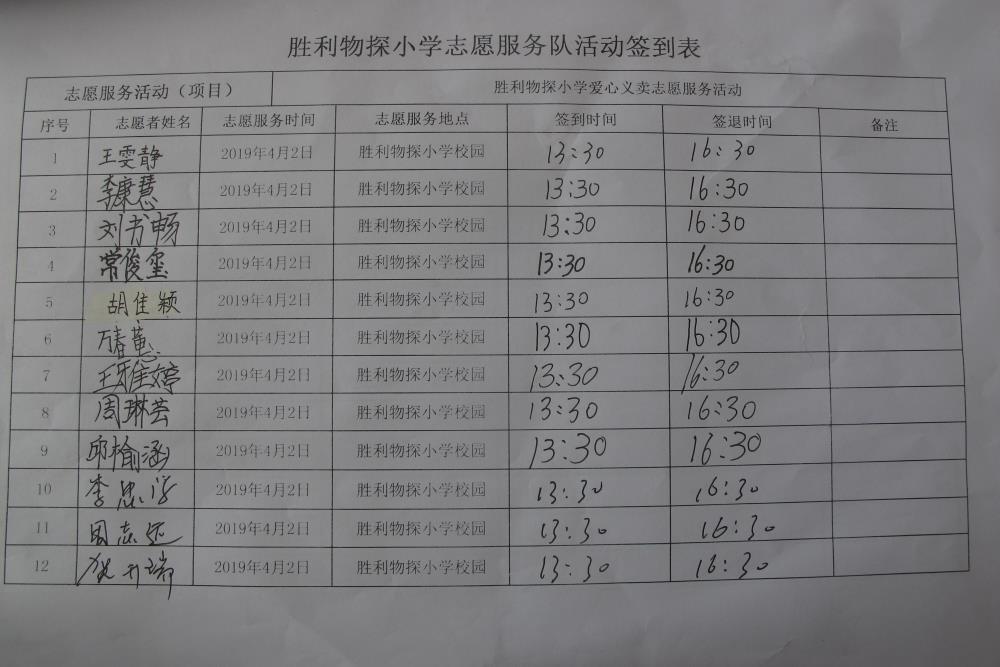 胜利物探小学志愿服务队活动签到表
志愿服务活动（项目） 胜利物探小学爱心义卖志愿服务活动
序号 志愿者姓名 志愿服务时间 志愿服务地点 签到时间 签退时间 备注
1 王雯静 2019年4月2日 胜利物探小学校园 13:30 16:30
2 李康慧 2019年4月2日 胜利物探小学校园 13:30 16:30
3 刘书畅 2019年4月2日 胜利物探小学校园 13:30 16:30
4 常俊玺 2019年4月2日 胜利物探小学校园 13:30 16:30
5 胡佳颖 2019年4月2日 胜利物探小学校园 13:30 16:30
6 万春蕙 2019年4月2日 胜利物探小学校园 13:30 16:30
7 王雅婷 2019年4月2日 胜利物探小学校园 13:30 16:30
8 周琳芸 2019年4月2日 胜利物探小学校园 13:30 16:30
9 邱榆涵 2019年4月2日 胜利物探小学校园 13:30 16:30
10 李忠 2019年4月2日 胜利物探小学校园 13:30 16:30
11 周志远 2019年4月2日 胜利物探小学校园 13:30 16:30
12 2019年4月2日 胜利物探小学校园 13:30 16:30